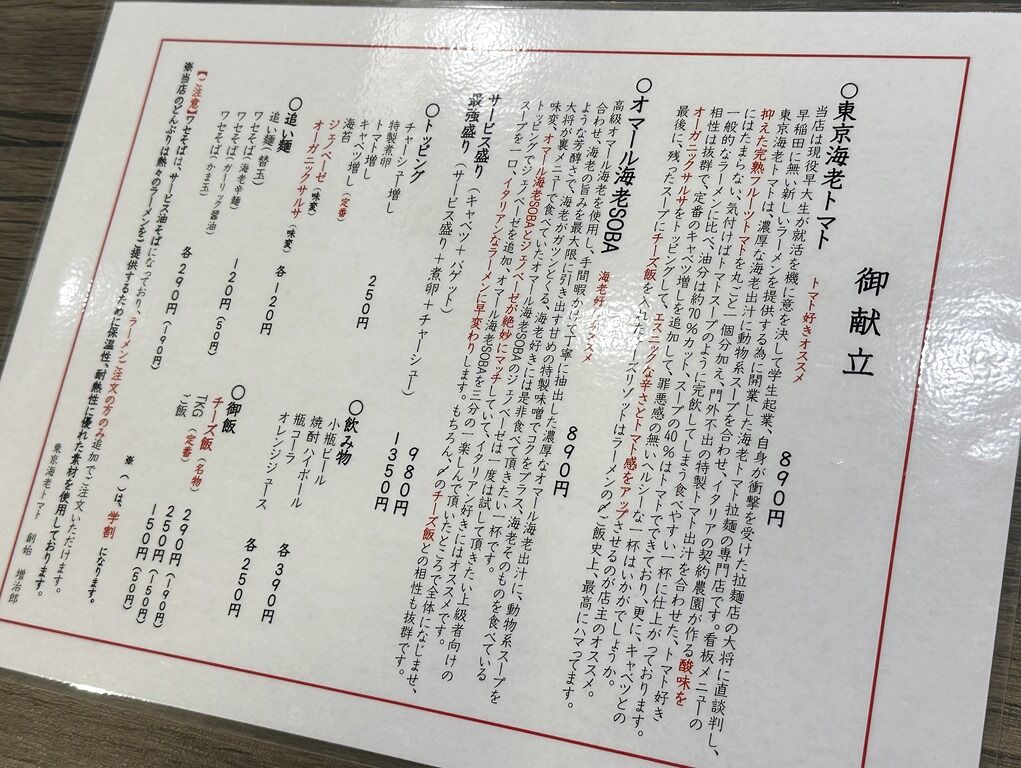 御献立
○東京海老トマト トマト好きオススメ 890円
当店は現役早大生が就活を機に意を決して学生起業、自身が衝撃を受けた拉麺店の大将に直談判し、
早稲田に無い新しいラーメンを提供する為に開業した海老トマト拉麺の専門店です。看板メニューの
東京海老トマトは、濃厚な海老出汁に動物系スープを合わせ、イタリアの契約農園が作る酸味を
抑えた完熟フルーツトマトを丸ごと一個分加え、門外不出の特製トマト出汁を合わせた、トマト好き
にはたまらない、気付けばトマトスープのように完飲してしまう食べやすい一杯に仕上がっております。
一般的なラーメンに比べ、油分は約70%カット、スープの40%はトマトでできており、更に、キャベツとの
相性は抜群で、定番のキャベツ増しを追加して、罪悪感の無いヘルシーな一杯はいかがでしょうか。
オーガニックサルサをトッピングして、エスニックな辛さとトマト感をアップさせるのが店主のオススメ。
最後に、残ったスープにチーズ飯を入れたチーズリゾットはラーメンの〆ご飯史上、最高にハマってます。
○オマール海老SOBA 海老好きオススメ 890円
高級オマール海老を使用し、手間暇かけて丁寧に抽出した濃厚なオマール海老出汁に、動物系スープを
合わせ、海老の旨みを最大限に引き出す甘めの特製味噌でコクをプラス、海老そのものを食べている
ような芳醇さで、海老がガツンとくる、海老好きには是非食べて頂きたい一杯です。
大将が裏メニューで食べていたオマール海老SOBAのジェノベーゼは一度は試して頂きたい上級者向けの
味変、オマール海老SOBAとジェノベーゼが絶妙にマッチしていて、イタリアン好きにはオススメです。
トッピングでジェノベーゼを追加、オマール海老SOBAを三分の一楽しんで頂いたところで全体になじませ、
スープを一口、イタリアンなラーメンに早変わりします。もちろん、〆のチーズ飯との相性も抜群です。
サービス盛り (キャベツ+バゲット) 980円
最強盛り (サービス盛り+煮卵+チャーシュー) 1350円
○トッピング
チャーシュー増し 250円
特製煮卵
トマト増し
キャベツ増し (定番)
海苔
ジェノベーゼ (味変)
オーガニックサルサ (味変) 各120円
○追い麺
追い麺 (替玉) 120円 (50円)
ワセそば (海老辛麺)
ワセそば (ガーリック醤油)
ワセそば (かま玉) 各290円 (190円)
○飲み物
小瓶ビール
焼酎ハイボール 各390円
瓶コーラ
オレンジジュース 各250円
○御飯
TKG 290円 (190円)
チーズ飯 (名物) 250円 (150円)
ご飯 (定番) 150円 (50円)
※ ( ) は、学割 になります。
【ご注意】ワセそばは、サービス油そばになっており、ラーメンご注文の方のみ追加でご注文いただけます。
※当店のどんぶりは熱々のラーメンをご提供するために保温性、耐熱性に優れた素材を使用しております。
東京海老トマト 創始 増治郎